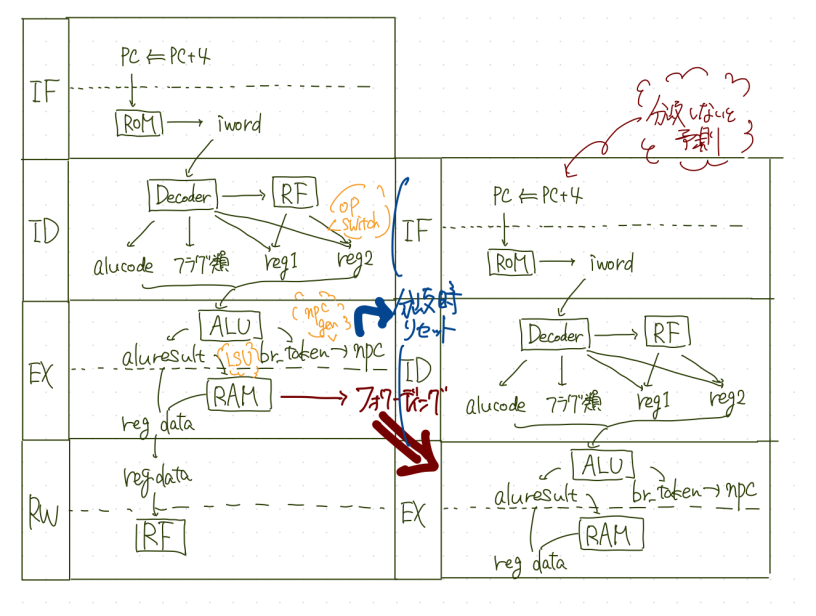 IF
PC ⇐ PC+4
ROM → iword
ID
Decoder → RF
OP
switch
alucode フラグ類 reg1 reg2
EX
ALU
npc
gen
aluresult LSU br_token → npc
RAM → フォワーディング
reg data
RW
reg data
RF
分岐時
リセット
分岐しないと
予測
IF
PC ⇐ PC+4
ROM → iword
ID
Decoder → RF
alucode フラグ類 reg1 reg2
EX
ALU
aluresult br_token → npc
RAM
reg data